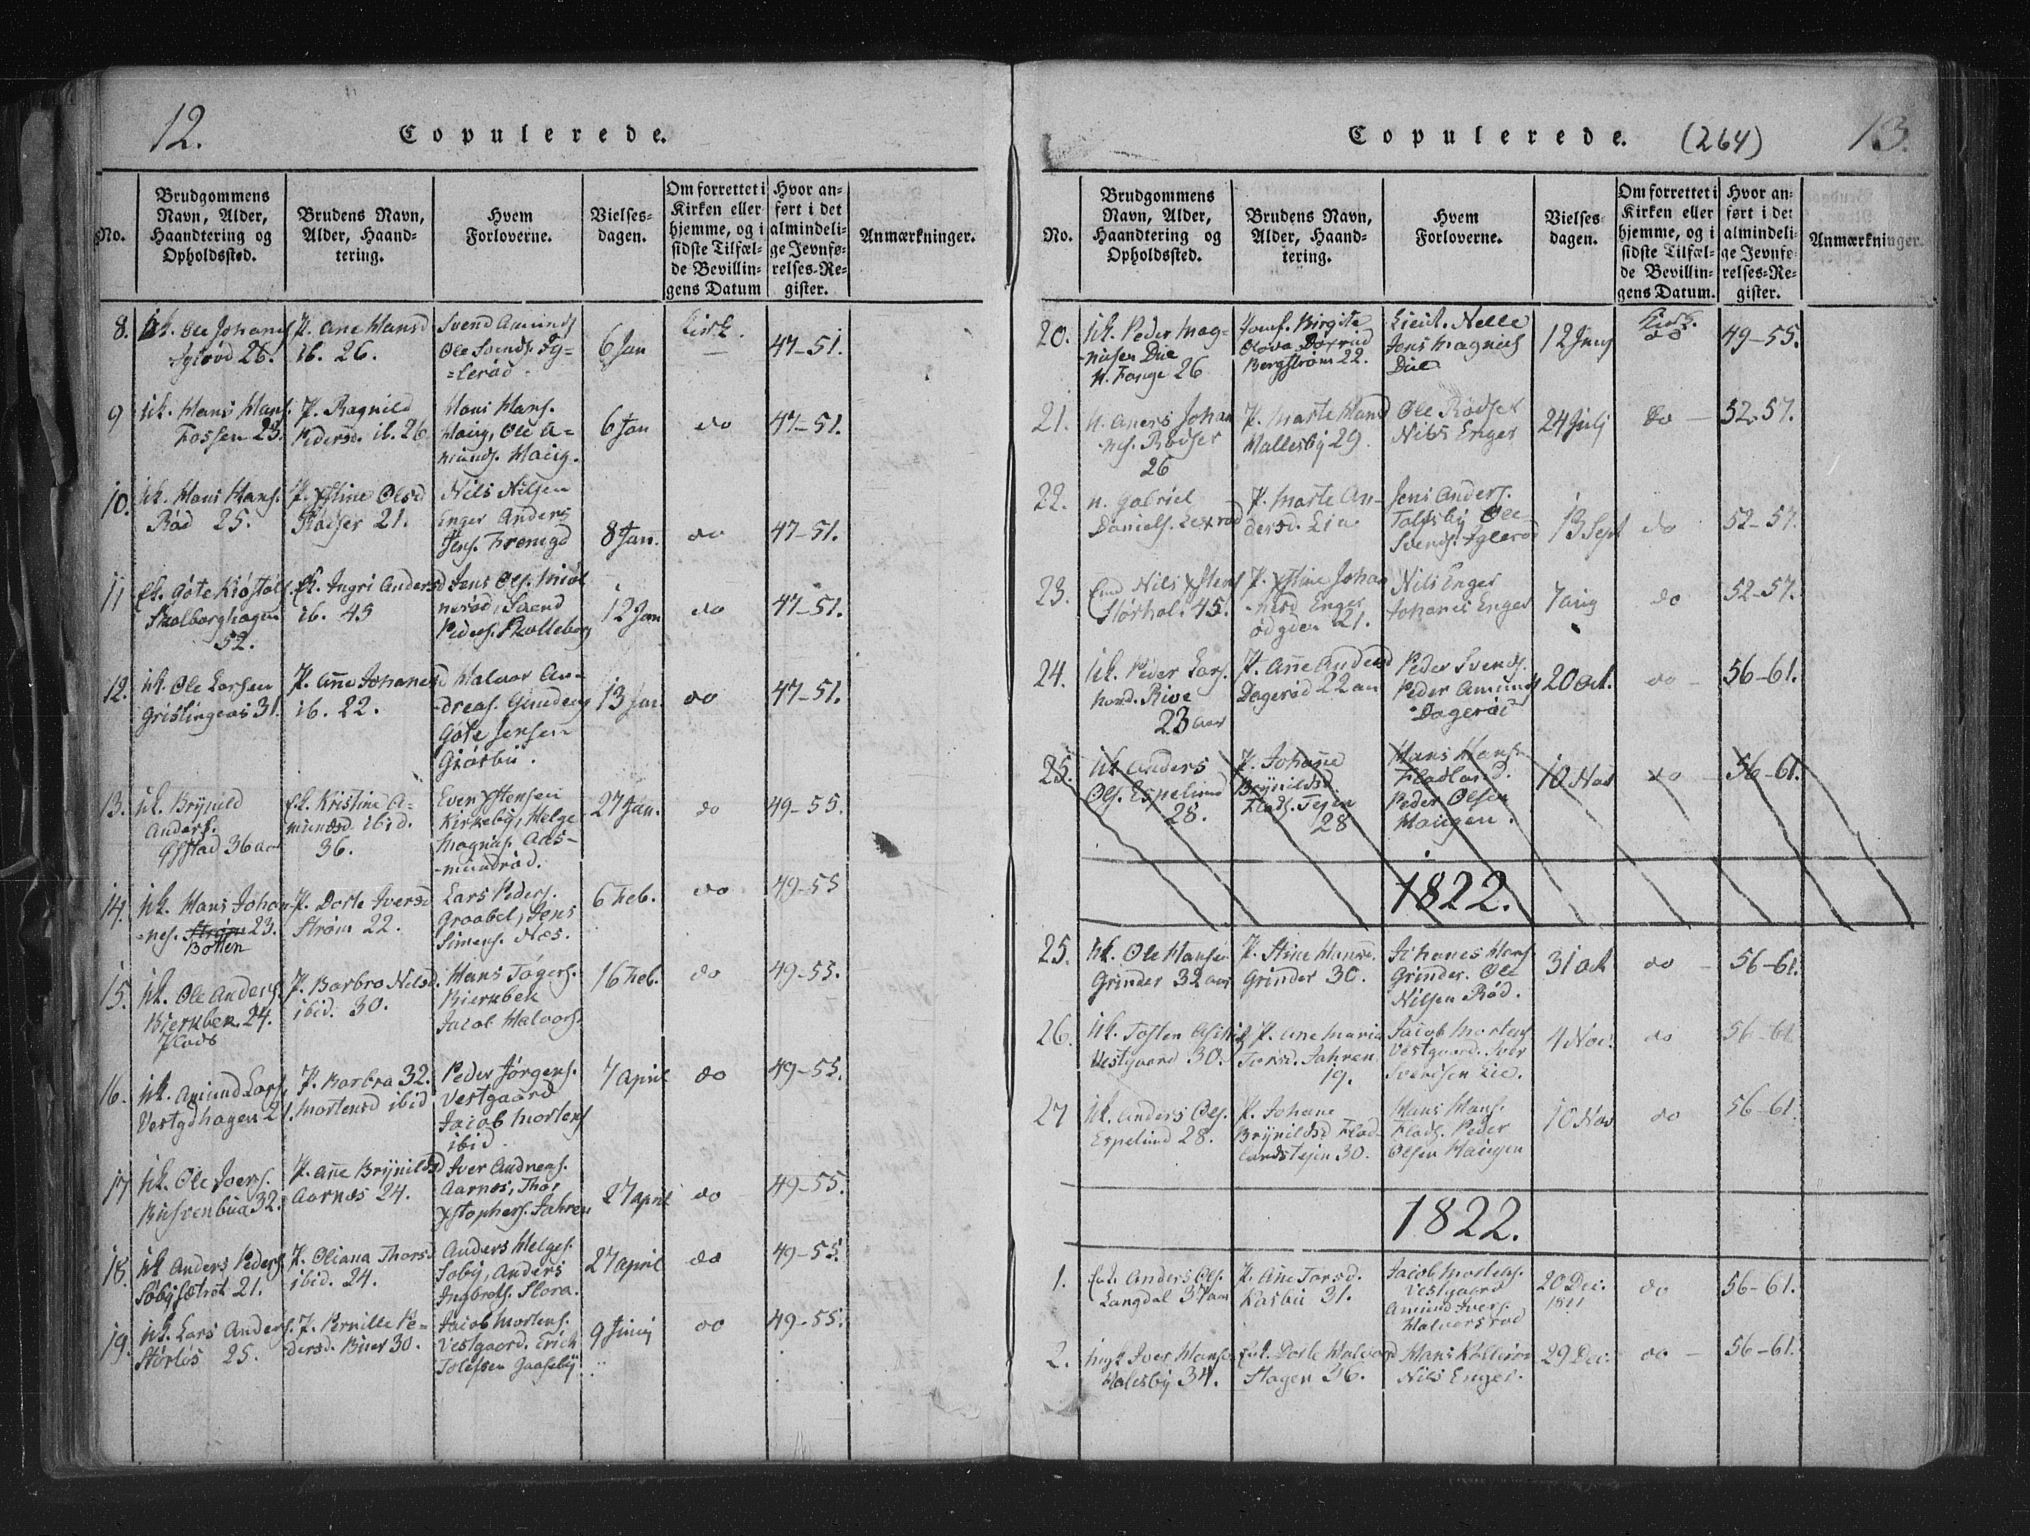 12.
Copulerede.
No.
Brudgommens
Navn, Alder,
Haandtering og
Opholdssted.
Brudens Navn,
Alder, Haand-
tering.
Hvem
Forloverne.
Vielses-
dagen.
Om forrettet i
Kirken eller
hjemme, og i
sidste Tilfæl-
de Bevillin-
gens Datum
Hvor an-
ført i det
almindeli-
ge Jevnfø-
relses-Re-
gister.
Anmærkninger.
8.
Uk. Ole Johans
26.
P. Ane Hansd
ib. 26.
Svend Amunds
Ole Svends. Ig-
=lerød.
6 Jan
Kirk.
47-51.
9
Uk. Hans Hans.
Fossen 23.
P. Ragnild
Pedersd. ib. 26
Hans Hans.
Haug, Ole A-
munds. Haug.
6 Jan
do
47-51.
10.
Uk. Hans Hans.
Rød 25.
P. Xstine Olsd
Rødser 21.
Nils Nilsen
Enger Anders
Jens.
8 Jan.
do
47-51.
11
Ek. Göte
Skolborghagen
52.
Ek. Ingri Andersd
ib. 45
Jens Ols.
Svend
Peders.
12 Jan
do
47-51.
12.
Uk. Ole Larsen
31.
P. Ane Johanesd
ib. 22.
Halvor An-
dreas.
Göte Jensen
13 Jan.
do
47-51.
13.
Uk. Brynild
Anders.
36 aar
Ek. Kristine A-
mundsd ibid.
36.
Even Xstensen
Kirkeby, Helge
Magnus. Aas-
-mundrød.
27 Jan.
do
49-55.
14.
Uk. Hans Johan-
-nes. 23.
Botten
P. Dorte Iversd
Strøm 22.
Lars Peders.
Graabøl, Jens
Simens. Næs.
6 Feb.
do
49-55
15.
Uk. Ole Anders.
Bierkbek 24.
Plads
P. Barbro Nilsd.
ibid. 30.
Hans Tøgers.
Bierkbek
Jacob Halvors.
16 Feb.
do
49-55.
16.
Uk. Amund Lars.
Vestgdhagen 21.
P. Barbra 32.
Mortensd ibid
Peder Jørgens.
Vestgaard
Jacob Mortens
ibid.
7 April
do
49-55.
17
Uk. Ole Ivers.
32.
P. Ane Brynildsd
Aarnes 24.
Iver Andreas.
Aarnes, Thor
Xstophers. Jahren
27 April
do
49-55.
18.
Uk Anders Peders
21.
P. Oliana Thorsd
ibid. 24.
Anders Helges.
Soby, Anders
Ingbrets. Flora.
27 April
do
49-55.
19.
Uk. Lars Anders.
Størløs 25.
P. Pernille Pe-
dersd. Buer 30.
Jacob Mortens.
Vestgaard. Erich
Tolefsen Gaaseby
9 Junij
do
49-55.
Copulerede.
(264)
13.
No.
Brudgommens
Navn, Alder,
Haandtering og
Opholdssted.
Brudens Navn,
Alder, Haand-
tering.
Hvem
Forloverne.
Vielses-
dagen.
Om forrettet i
Kirken eller
hjemme, og i
sidste Tilfæl-
de Bevillin-
gens Datum.
Hvor an-
ført i det
almindeli-
ge Jevnfø-
relses-Re-
gister.
Anmærkninger.
20.
Uk. Peder Mag-
-nusen Due
26
Jomf. Birgite
Olova
Bergstrøm 22.
Lieut. Nelle
Jens Magnus
Due
12 Junij
Kirk.
do
49-55.
21.
Johan
nes. Rødser
26
P. Marte Hansd
Hallesby 29.
Ole Rødser
Nils Enger
24 Julj
do
52-57.
22.
N. Gabriel
Daniels. Lerrød
P. Marte An-
dersd. Lia
Jens Anders.
Tolfsby Ole
Svends. Iglerød
13 Sept
do
52-57.
23.
Nils Xstens
45.
P. Xstine Johan
nesd Enger
21.
Nils Enger
Johanes Enger
7 Aug
do
52-57.
24.
Uk. Peder Lars.
Rive
23 aar
P. Ane Andersd
Dagerød 22 an
Peder Svends.
Peder Amunds
Dagerød
20 Oct.
do
56-61.
25.
Uk Anders
Ols. Espelund
28.
P. Johane
Brynildsd.
Flads. Tejen
28
Hans Hans.
Fladland.
Peder Olsen
Haugen.
10 Nov
do
56-61.
1822.
25.
Uk. Ole Hansen
Grinder 32 aar
P. Stine Hansd.
Grinder 30.
Johanes Hans.
Grinder. Ole
Nilsen Rød.
31 Oct
do
56-61.
26.
Uk. Tosten
Vestgaard 30.
P. Ane Maria
Torsd. Jahren
19.
Jacob Mortens
Vestgaard. Iver
Lie.
4 Nov.
do
56-61
27
Uk. Anders Ols.
Espelund 28.
P. Johane
Brynildsd Flad-
landstejen 30.
Hans Hans.
Flads. Peder
Olsen Haugen
10 Nov
do
56-61.
1822.
1.
Anders Ols.
Langdal 37 aar
P. Ane Torsd.
Kasbu 31.
Jacob Mortens.
Vestgaard
Amund Ivers.
Halvorsrød
20 Dec.
1821
do
56-61.
2.
Iver Hans
Halesby 34.
Dorte Halvord
Hagen 26.
Hans
Nils Enger.
29 Dec.
do
56-61.